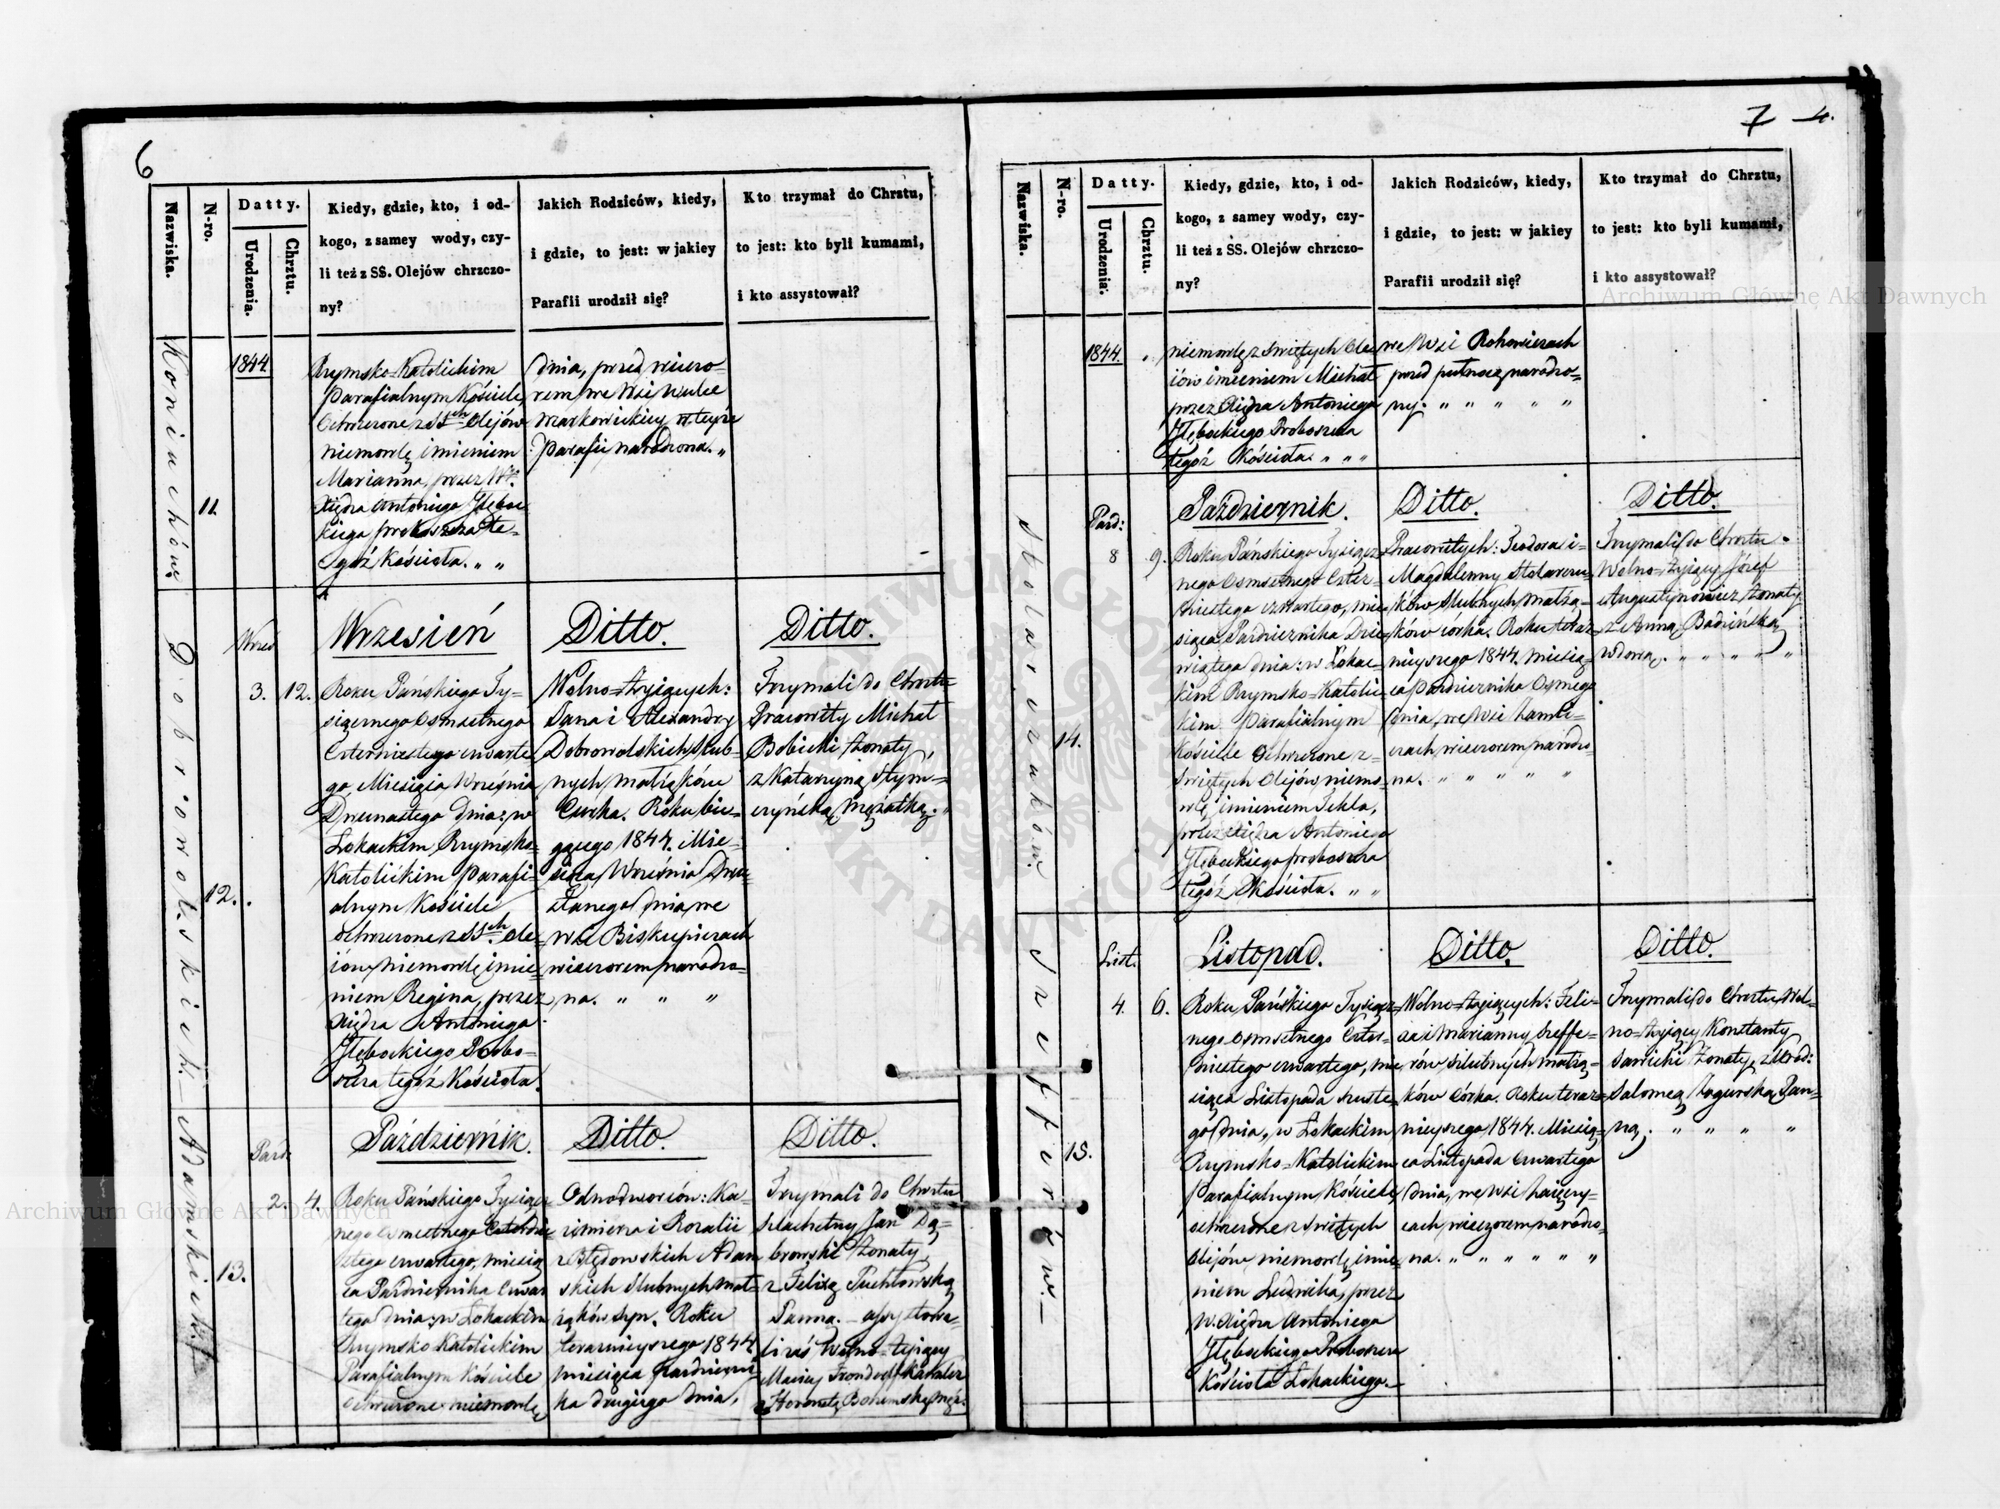 6
Nazwiska.
N-ro.
Datty.
Urodzenia.
Chrztu.
Kiedy, gdzie, kto, i od-
kogo, z samey wody, czy-
li też z SS. Olejów chrzczo-
ny?
Jakich Rodziców, kiedy,
i gdzie, to jest: w jakiey
Parafii urodził się?
Kto trzymał do Chrztu,
to jest: kto byli kumami,
i kto assystował?
Koniuchów
11.
1844
Rzymsko-Katolickim
Parafialnym Kościele,
Ochrzczone z SSch Olejów
niemowlę imieniem
Marianna, przez W.
Xiędza Antoniego Głębo-
kiego proboszcza te-
goż Kościoła. „ „
dnia, przed wieczo-
rem we Wsi Wulce
Markowickiey w teyże
Parafii narodzona. „
Dobrowolskich
12.
Wrzes
3. 12.
Wrzesień
Roku Pańskiego Ty-
siącznego Osmsetnego
Czterdziestego czwarte-
go, Miesiąca Września
Dwunastego Dnia; w
Lokackim Rzymsko-
Katolickim Parafi-
alnym Kościele
ochrzczone z SSch Ole-
iów, niemowlę imie-
niem Regina, przez
Xiędza Antoniego
Głębockiego Probo-
szcza tegoż Kościoła.
Ditto.
Wolno-żyjących:
Jana i Alexandry
Dobrowolskich ślub-
nych małżąków
Curka. Roku bie-
gącego 1844. Mie-
siąca Września
dnia, we
wsi Biskupiczach
wieczorem narodzo-
na. „ „ „
Ditto.
Trzymali do Chrztu
Pracowity Michał
Bobicki żonaty,
z Katarzyną Słym-
czyńską Mężatką. „
Adamskich.
13.
Pazd
2. 4.
Październik.
Roku Pańskiego Tysiącz-
nego Osmsetnego Czterdzie-
stego czwartego, miesią-
ca Października Czwar-
tego dnia; w Lokackim
Rzymsko Katolickim
Parafialnym Kościele
Ochrzczone niemowlę
Ditto.
Odnodworców: Ka-
zimierza i Rozalii
z Błędowskich Adam-
skich Slubnych mał-
żąków Syn. Roku
teraznieyszego 1844
miesiąca Październi-
ka drugiego dnia,
Ditto.
Trzymali do Chrztu
Szlachetny Jan Dą-
browski żonaty,
z Felixą Puchłowską
Panną. – assystowa-
li zaś Wolno-żyjący
Maciey Kawaler
z Honoratą
7 4.
Nazwiska.
N-ro.
Datty.
Urodzenia.
Chrztu.
Kiedy, gdzie, kto, i od-
kogo, z samey wody, czy-
li też z SS. Olejów chrzczo-
ny?
Jakich Rodziców, kiedy,
i gdzie, to jest: w jakiey
Parafii urodził się?
Kto trzymał do Chrztu,
to jest: kto byli kumami,
i kto assystował?
1844.
niemowlę z świętych Ole-
iów imieniem Michał
przez Xiędza Antoniego
Głębockiego Proboszcza
tegoż Kościoła. „ „ „
we Wsi Rohowiczach
przed pułnocą narodzo-
ny. „ „ „ „ „
Stolarczuków.
14.
Pazd:
8 9.
Październik.
Roku Pańskiego Tysiącz-
nego Osmsetnego Czter-
dziestego czwartego, mie-
siąca Października Dzie-
wiątego dnia: w Lokac-
kim Rzymsko-Katolic-
kim Parafialnym
Kościele Ochrzczone z
Świętych Olejów niemo-
wlę imieniem Tekla,
przez Xiędza Antoniego
Głębockiego proboszcza
tegoż Kościoła. „ „
Ditto.
Pracowitych: Teodora i
Magdalenny Stolarczu-
ków Slubnych Małżą-
ków corka. Roku teraz-
nieyszego 1844. miesią-
ca Października Osmego
dnia, we Wsi Zamli-
czach wieczorem narodzo-
na. „ „ „ „ „
Ditto.
Trzymali do Chrztu
Wolno-żyjący Józef
Augustynowicz żonaty
z Anną Badzińską
wdową. „ „ „ „ „
Szefferów.
15.
List.
4. 6.
Listopad.
Roku Pańskiego Tysiącz-
nego Osmsetnego Czter-
dziestego czwartego, mie-
siąca Listopada Szuste-
go dnia, w Lokackim
Rzymsko-Katolickim
Parafialnym Kościele
ochrzczone z świętych
Olejów niemowlę imie-
niem Ludwika, przez
W. Xiędza Antoniego
Głębockiego Proboszcza
Kościoła Lokackiego.
Ditto.
Wolno-żyjących: Feli-
xa i Marianny Szeffe-
rów Slubnych małżą-
ków Córka. Roku teraz-
nieyszego 1844. Miesią-
ca Listopada Czwartego
dnia, we Wsi
czach wieczorem narodzo-
na. „ „ „ „ „ „
Ditto.
Trzymali do Chrztu Wol-
no-żyjący Konstanty
Sawicki żonaty, z Urod:
Salomeą Zagurską Pan-
ną. „ „ „ „
Archiwum Główne Akt Dawnych
Archiwum Główne Akt Dawnych
ARCHIWUM GŁÓWNE AKT DAWNYCH